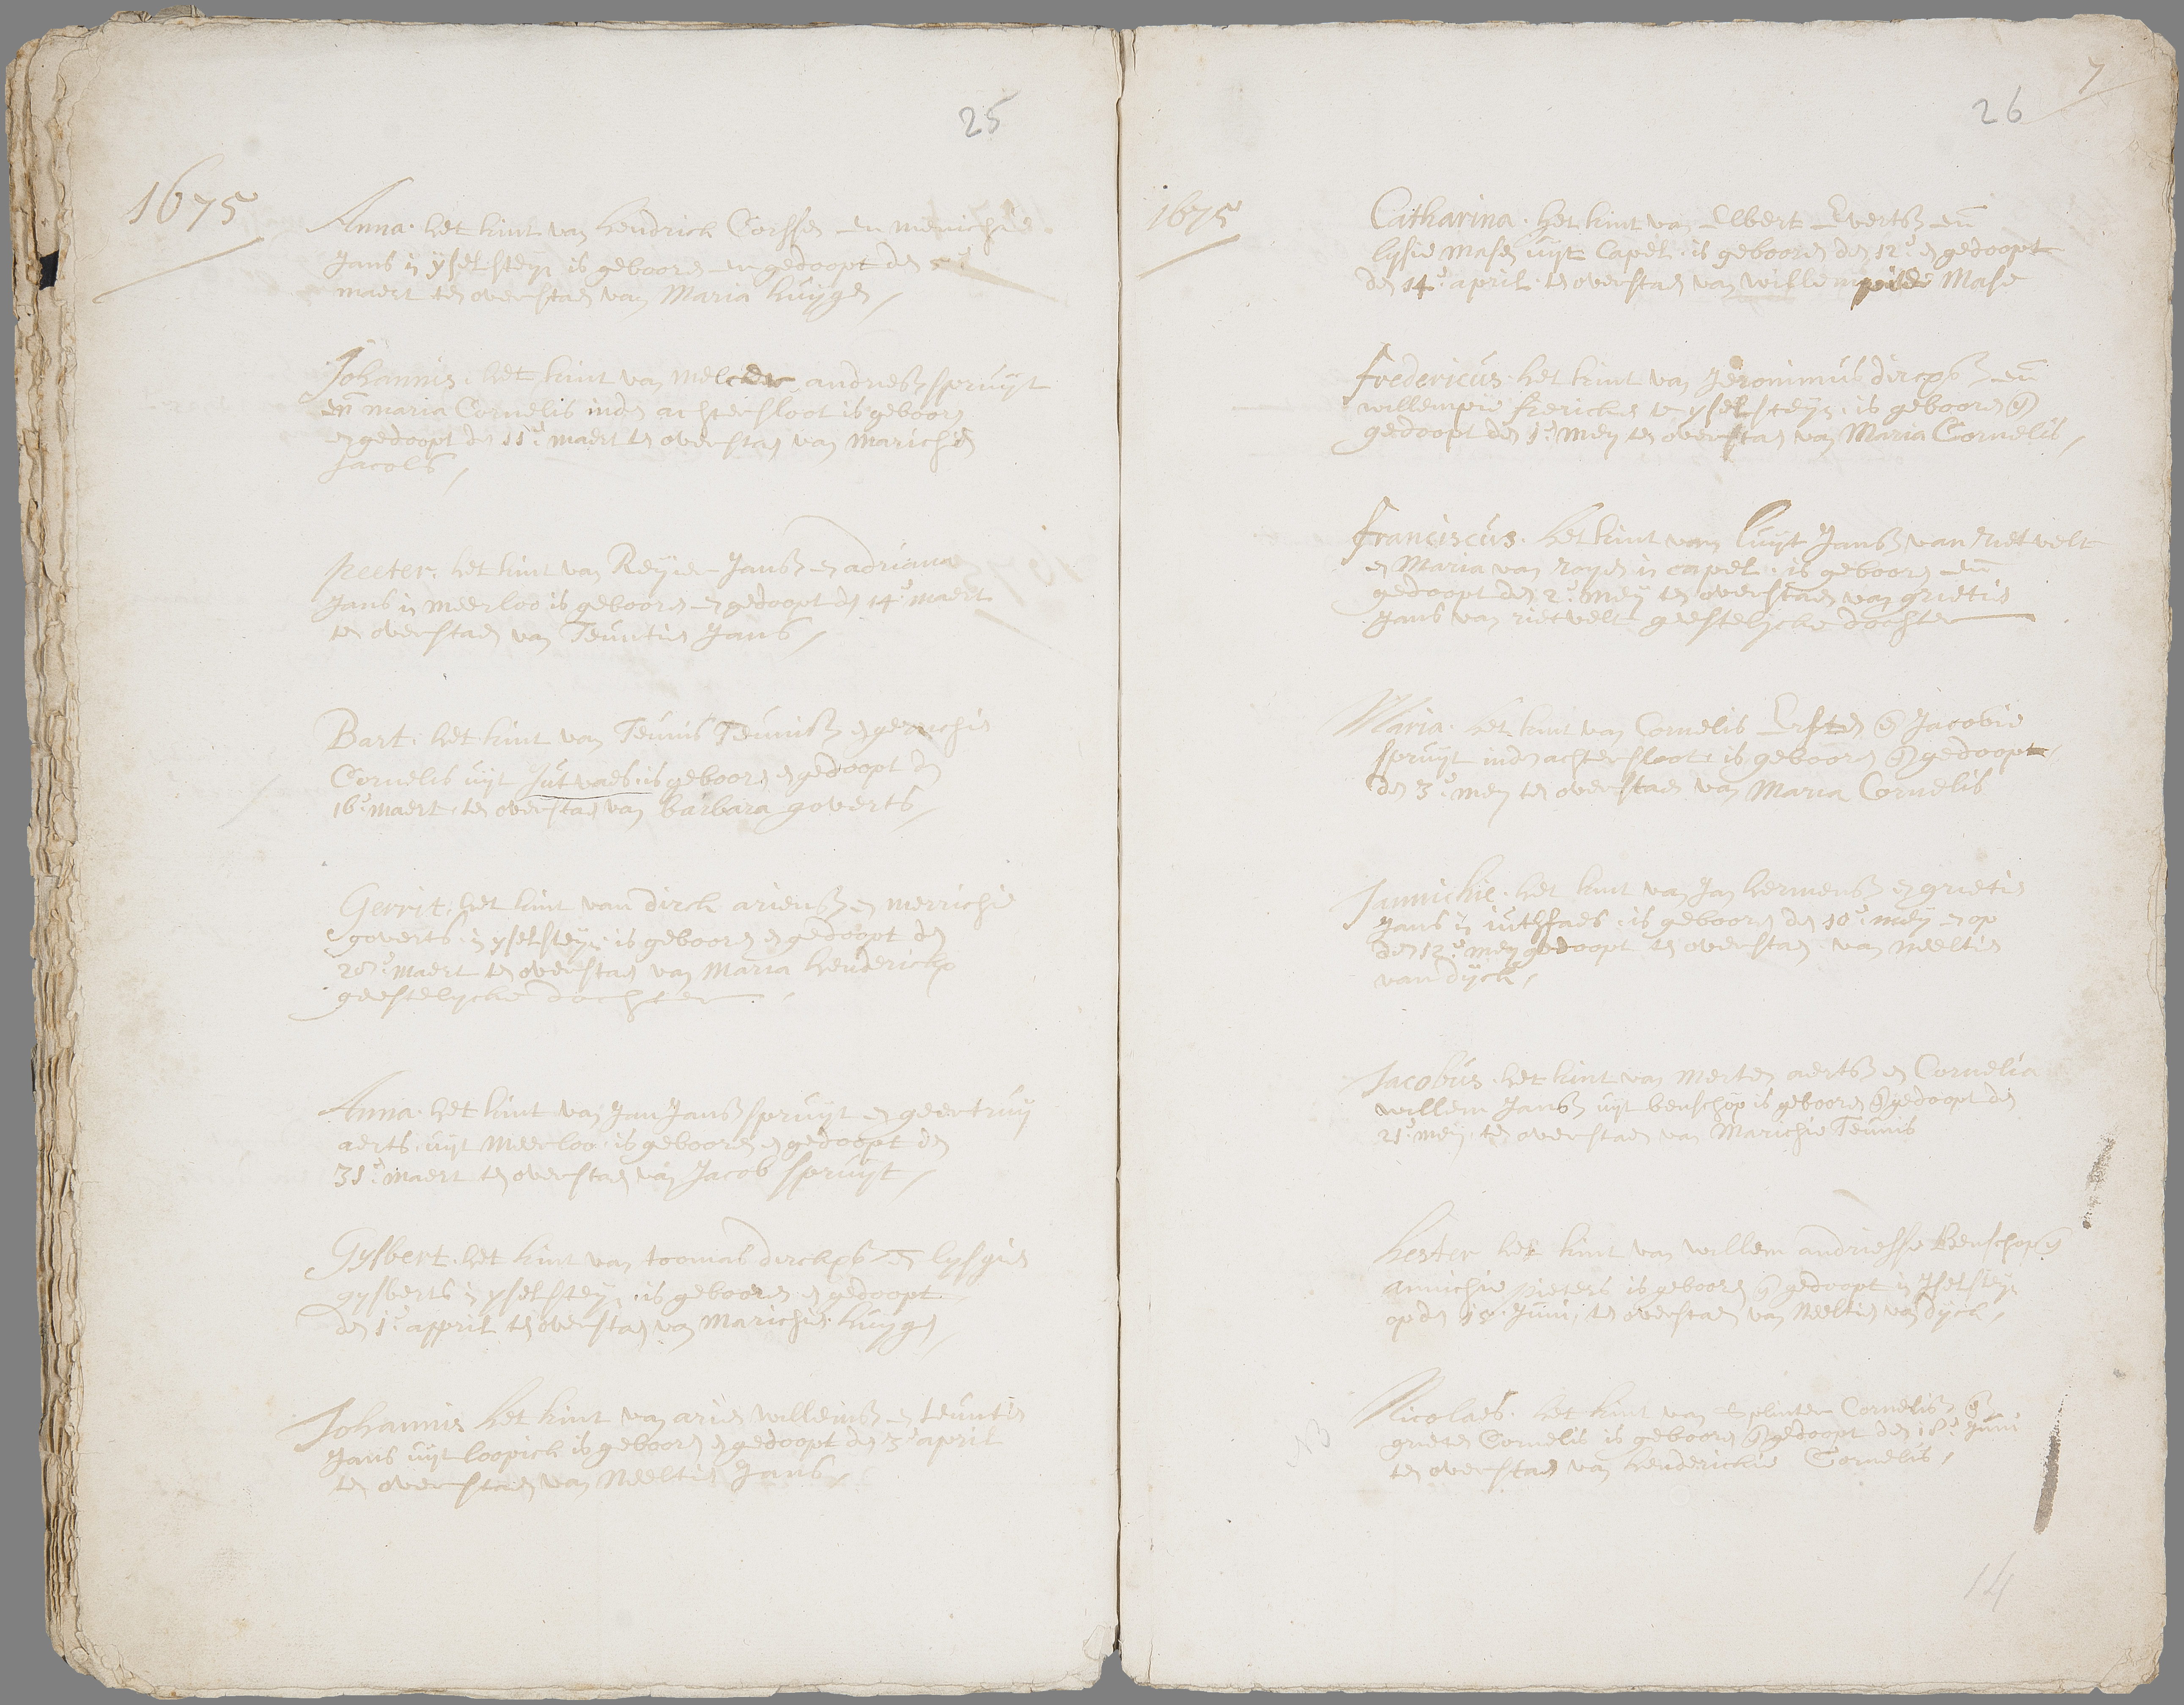 25
1675
Anna. het kint van hendrick Corssen en menichie
Jans in yselsteyn is geboore en gedoopt den 5e
maert ten overstaen van Maria huyge
Johannis. het kint van melcher andriesz spruyt
en maria Cornelis inde achtersloot is geboore
en gedoopt den 11e maert ten overstaen van marichie
Jacobs
Peeter. het kint van Reyier Jansz en adriana
Jans in meerloo is geboore en gedoopt den 14e maert
ten overstaen van Teuntie Jans
Bart. het kint van Teunis Teunisz en gerrichie
Cornelis uyt Jutvaes. is geboore en gedoopt den
16e maert. ten overstaen van barbara goverts
Gerrit. het kint van dirck ariensz en merrichie
goverts in yselsteyn. is geboore en gedoopt den
maert ten overstaen van Maria hendericks
geestelycke dochter
Anna. het kint van Jan Jansz spruyt en geertruy
aerts. uyt meerloo. is geboore en gedoopt den
31e maert ten overstaen van Jacob spruyt
Gysbert. het kint van toomas dirckxsz en lysgie
gysberts in yselsteyn. is geboore en gedoopt
den 1e appril ten overstaen van Marichie huyge
Johannis het kint van arie willemsz en teuntie
Jans uyt loopick is geboore en gedoopt den 3e april
ten overstaen van Neeltie Jans
7
26
1675
Catharina. het kint van Elbert Evertsz en
lysie mase uyt Capel. is geboore den 12e en gedoopt
den 14e april. ten overstaen van willempie Mase
fredericus. het kint van Jeronimus dircxsz en
willempie fredricks te yselsteyn. is geboore en
gedoopt den 1e mey ten overstaen van Maria Cornelis
franciscus. het kint van luyt Jansz van rietvelt
en Maria van royen in capel. is geboore en
gedoopt den 2e mey ten overstaen van grietie
Jans van rietvelt geestelycke dochter
Maria. het kint van Cornelis Ersten en Jacobie
spruyt inde achtersloot. is geboore en gedoopt
den 3e mey ten overstaen van Maria Cornelis
Jannichie. het kint van Jan hermensz en grietie
Jans in iuthfaes. is geboore den 10e mey en op
den 12e mey gedoopt ten overstaen van neeltie
van dyck
Jacobus. het kint van merten aertsz en Cornelia
willem Jansz uyt benschop is geboore en gedoopt den
21e mey. ten overstaen van Marichie Teunis
hester het kint van willem andriesse Benschop en
annichie pieters is geboore en gedoopt in Iselsteyn
op den Juni, ten overstaen van Neeltie van dyck
NB
Nicolaes. het kint van Splinter Cornelisz en
griete Cornelis is geboore en gedoopt den 18e Juni
ten overstaen van henderickie Cornelis
14